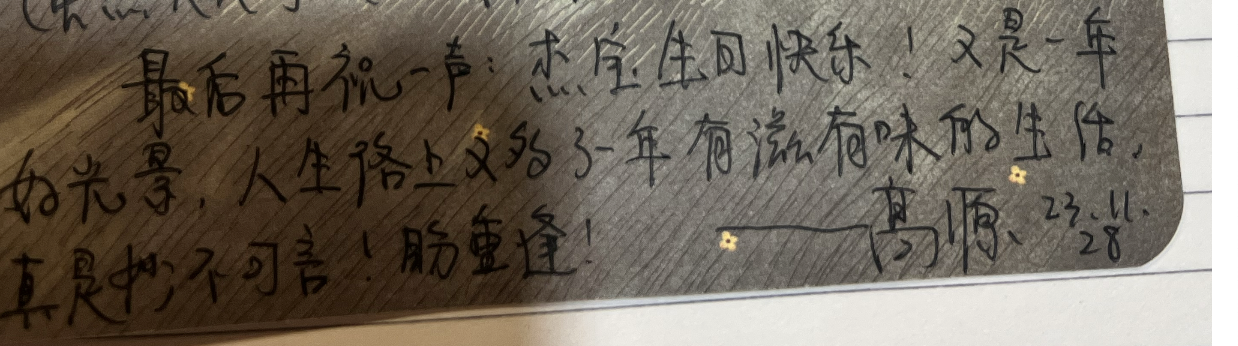 最后再祝一声：杰宝生日快乐！又是一年
好光景，人生路上又多了一年有滋有味的生活，
真是妙不可言！盼重逢！ ——高源、23.11.28